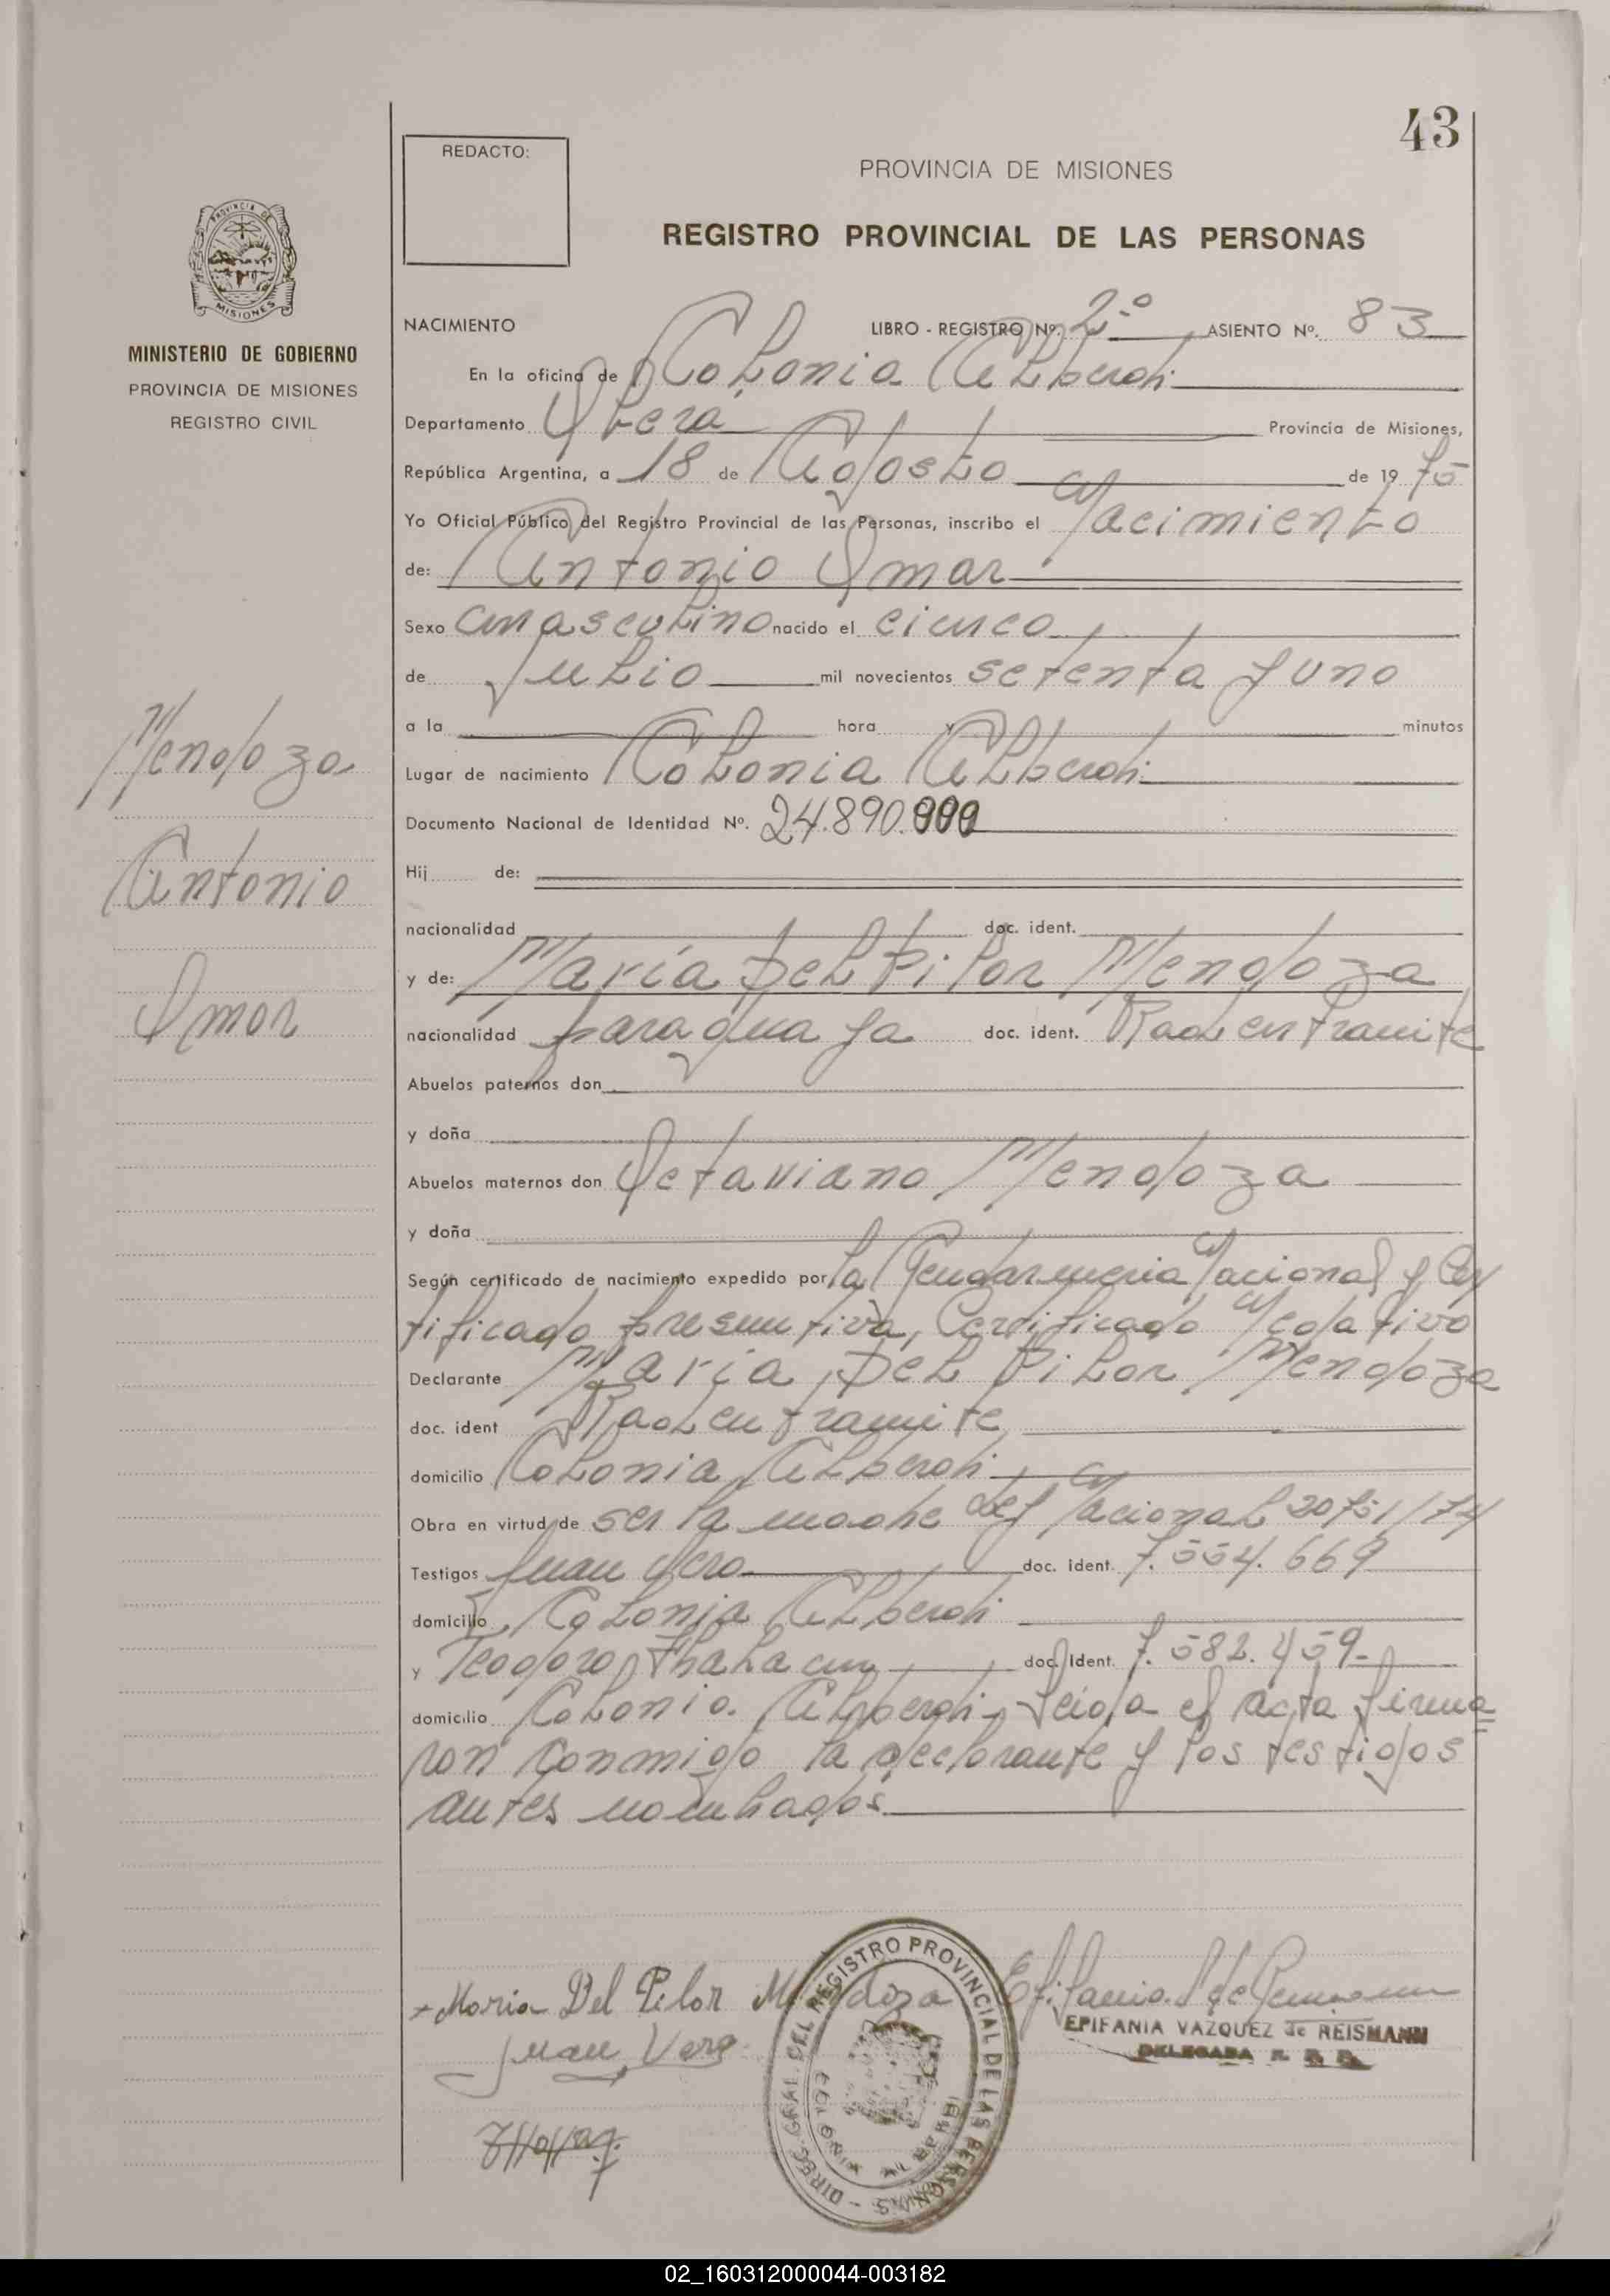 43
REDACTO:
PROVINCIA DE MISIONES
REGISTRO PROVINCIAL DE LAS PERSONAS
PROVINCIA DE
MISIONES
MINISTERIO DE GOBIERNO
PROVINCIA DE MISIONES
REGISTRO CIVIL
Mendoza
Antonio
Omar
NACIMIENTO LIBRO - REGISTRO Nº. 2º ASIENTO Nº. 83
En la oficina de Colonia Alberdi
Departamento Oberá Provincia de Misiones,
República Argentina, a 18 de Agosto de 1975
Yo Oficial Público del Registro Provincial de las Personas, inscribo el Nacimiento
de: Antonio Omar
Sexo masculino nacido el cinco
de Julio mil novecientos setenta y uno
a la hora y minutos
Lugar de nacimiento Colonia Alberdi
Documento Nacional de Identidad Nº. 24.890.
Hij de:
nacionalidad doc. ident.
y de: María Del Pilar Mendoza
nacionalidad paraguaya doc. ident. Rad. en tramite
Abuelos paternos don
y doña
Abuelos maternos don Octaviano Mendoza
y doña
Según certificado de nacimiento expedido por la Gendarmeria Nacional y Cer
tificado presuntiva, Certificado Negativo
Declarante María Del Pilar Mendoza
doc. ident Rad. en tramite
domicilio Colonia Alberdi
Obra en virtud de ser la madre Ley Nacional 20751/74
Testigos Juan Vera doc. ident. 7.554.669
domicilio Colonia Alberdi
y Teodoro doc. ident. 7.582.459-
domicilio Colonia Alberdi- Leida el acta firma
ron conmigo la declarante y los testigos
antes nombrados
Maria Del Pilar Mendoza
Juan Vera
EPIFANIA VAZQUEZ de REISMANN
DELEGADA R. P. P.
DIREC. GRAL. DEL REGISTRO PROVINCIAL DE LAS PERSONAS
COLONIA ALBERDI
02_160312000044-003182